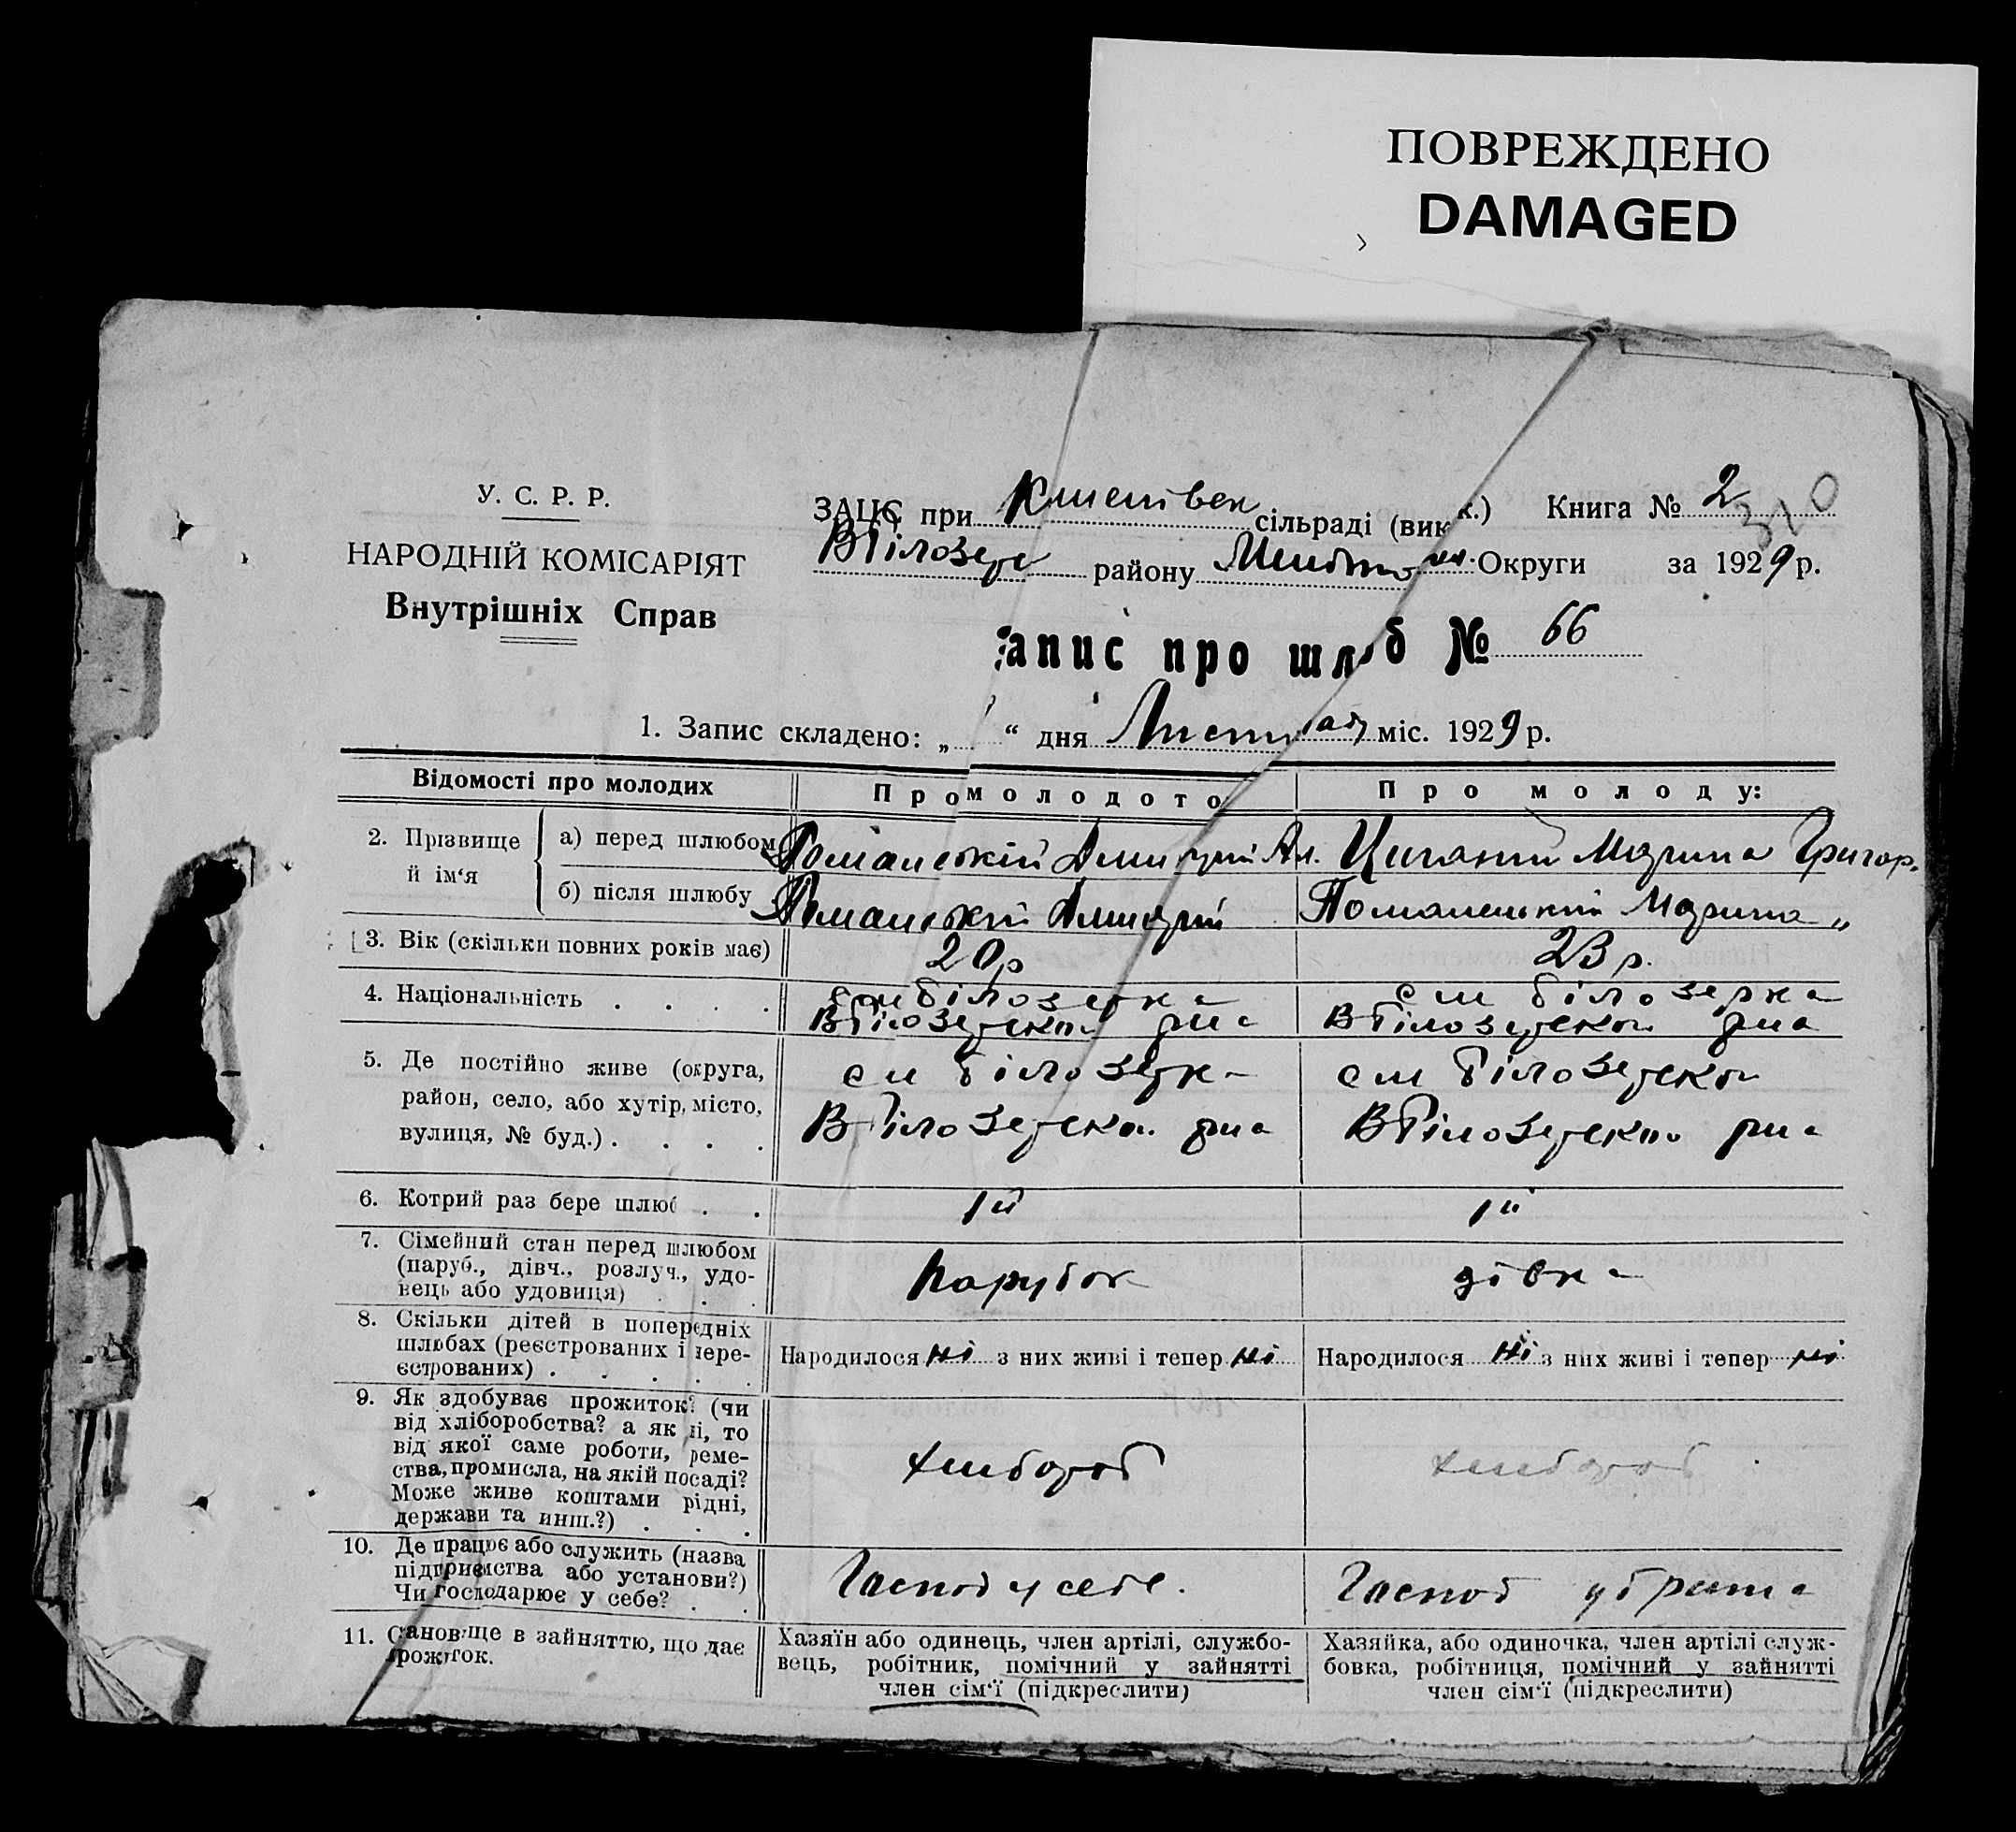 ПОВРЕЖДЕНО
DAMAGED
У. С. Р. Р.
НАРОДНІЙ КОМІСАРІЯТ
Внутрішніх Справ
ЗАЦС при сільраді (вик к.) Книга № 2
310
району Округи за 1929 р.
апис про шл б № 66
1. Запис складено: „ “ дня міс. 1929 р.
Відомості про молодих
Про молодого
Про молоду:
2. Прізвище й ім‘я
а) перед шлюбом
Марина Григор.
б) після шлюбу
Марина „
3. Вік (скільки повних років має)
20 р
23 р.
4. Національність . . . .
см білозерка
см білозерка
5. Де постійно живе (округа,
район, село, або хутір, місто,
вулиця, № буд.) . . . .
6. Котрий раз бере шлюб . .
1й
1й
7. Сімейний стан перед шлюбом
(паруб., дівч., розлуч., удо-
вець або удовиця) . . .
парубок
дівка
8. Скільки дітей в попередніх
шлюбах (реєстрованих і нере-
єстрованих) . . . . .
Народилося ні з них живі і тепер ні
Народилося ні з них живі і тепер ні
9. Як здобуває прожиток? (чи
від хліборобства? а як ні, то
від якої саме роботи, реме-
ства, промисла, на якій посаді?
Може живе коштами рідні,
держави та инш.?) . . .
хлибороб
хлибороб
10. Де працює або служить (назва
підприємства або установи?)
Чи господарює у себе? . .
Господ у себе.
Господ у брата
11. Становище в зайняттю, що дає
прожиток.
Хазяїн або одинець, член артілі, службо-
вець, робітник, помічний у зайнятті
член сім‘ї (підкреслити)
Хазяйка, або одиночка, член артілі служ-
бовка, робітниця, помічний у зайнятті
член сім‘ї (підкреслити)